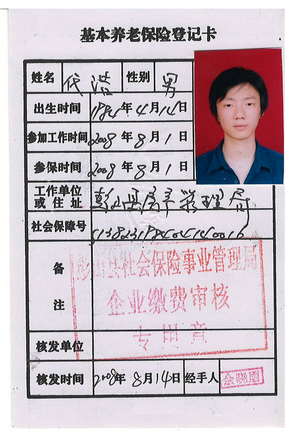 基本养老保险登记卡
姓名 代浩 性别 男
出生时间 1984年4月14日
参加工作时间 2008年8月1日
参保时间 2008年8月1日
工作单位
或住址 彭山县房产管理局
社会保障号
备注
彭山县社会保险事业管理局
企业缴费审核
专用章
核发单位
核发时间 2008年8月14日 经手人